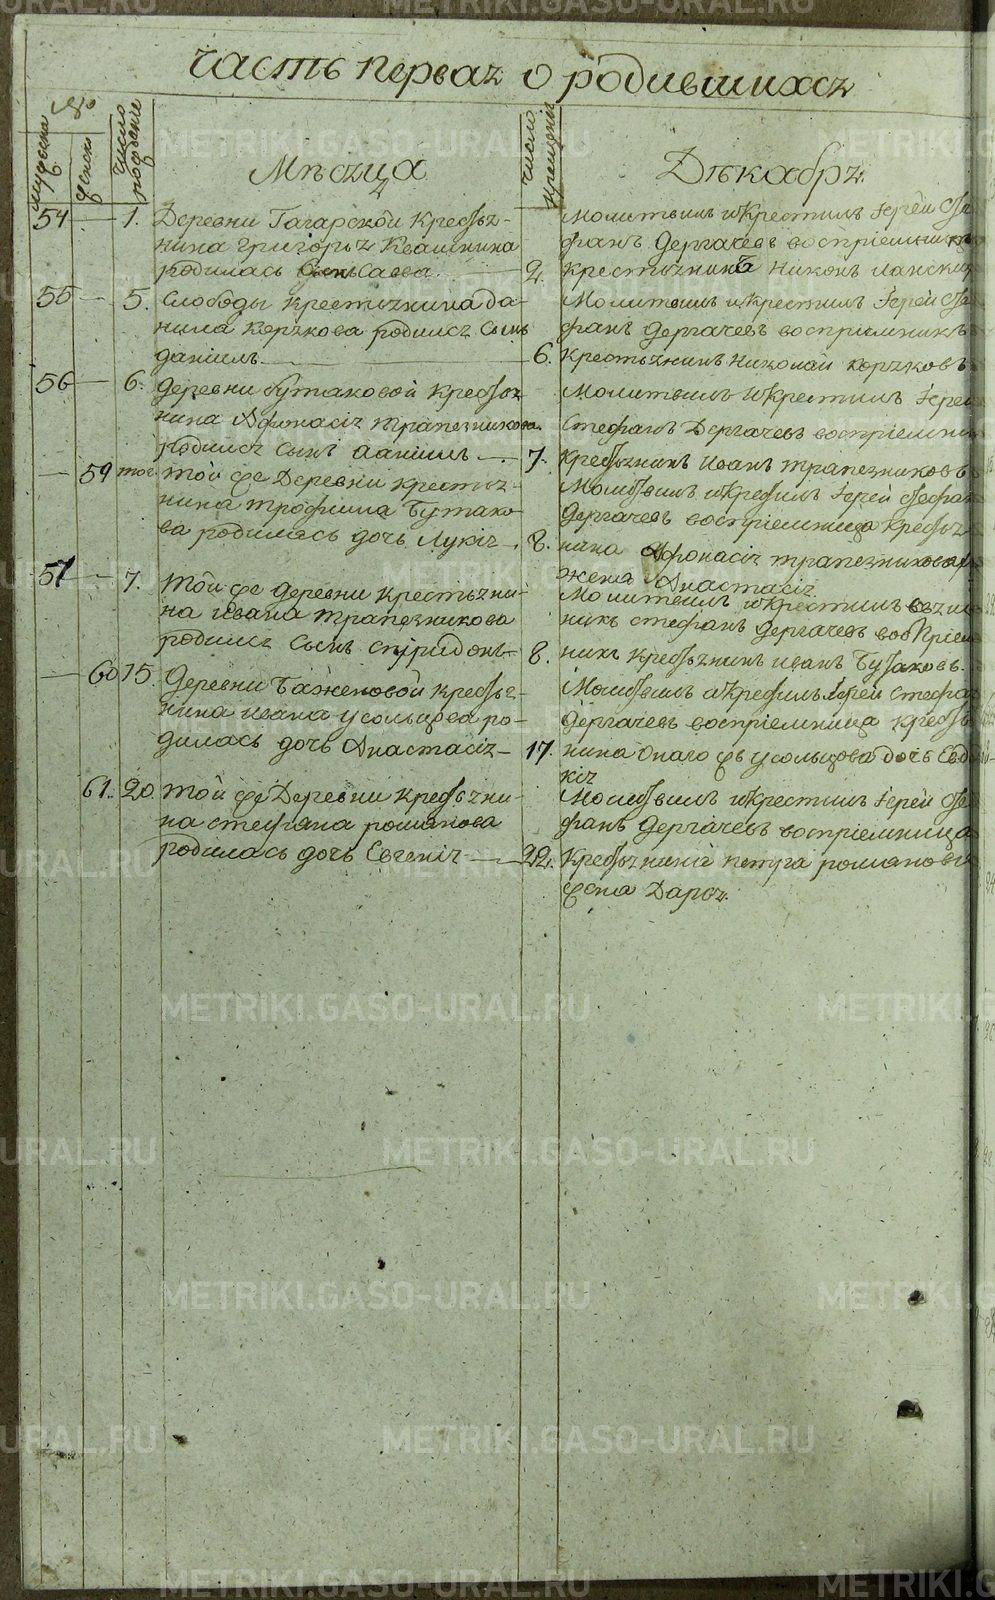 часть первая о родившихся
мужеска
женска
число рождения
Мѣсяца
число крещения
Декабря
54 1. Деревни Гагарской Кресть-
нина Григорья Квашнина
родилась Сынъ Савва
Молитвилъ и крестилъ Iерей Сте
фанъ Дергачевъ восприемникъ
2. крестьянинъ Никонъ
55 5. Слободы крестьянина да-
нила Коркова родился Сынъ
данiилъ
Молитвилъ и крестилъ Iерей Сте
фанъ Дергачевъ восприемникъ
6. крестьянинъ Николай Корковъ
56 6. деревни бутаковой крестья
нина Афонасiя трапезникова
родился Сынъ данiилъ
Молитвилъ и крестилъ Iерей
Стефанъ Дергачевъ восприемни
7. крестьянинъ Иванъ трапезниковъ
59 тог. той же Деревни крестья-
нина трофима Бутако-
ва родилась дочь Лукiя
Молитвилъ и крестилъ Iерей Стефан
Дергачевъ восприемница крестья
8. нина Афонасiя трапезникова
жена Анастасiя
57 7. той же деревни крестьяни-
на ивана трапезникова
родился Сынъ спиридонъ
Молитвилъ и крестилъ священ
никъ стефанъ дергачевъ восприем
8. никъ крестьянинъ иванъ Бутаковъ.
60 15. Деревни Баженовой кресть-
нина ивана усольцова ро-
дилась дочь Анастасiя
Молитвилъ и крестилъ Iерей стефа
дергачевъ восприемница крестья
17. нина усольцова дочь Евдо
кiя
61. 20. той же Деревни крестьяни-
на стефана романова
родилась дочь Евгенiя
Молитвилъ и крестилъ Iерей Сте
фанъ Дергачевъ восприемница
22. крестьянина петра романова
жена Дарья.
METRIKI.GASO-URAL.RU